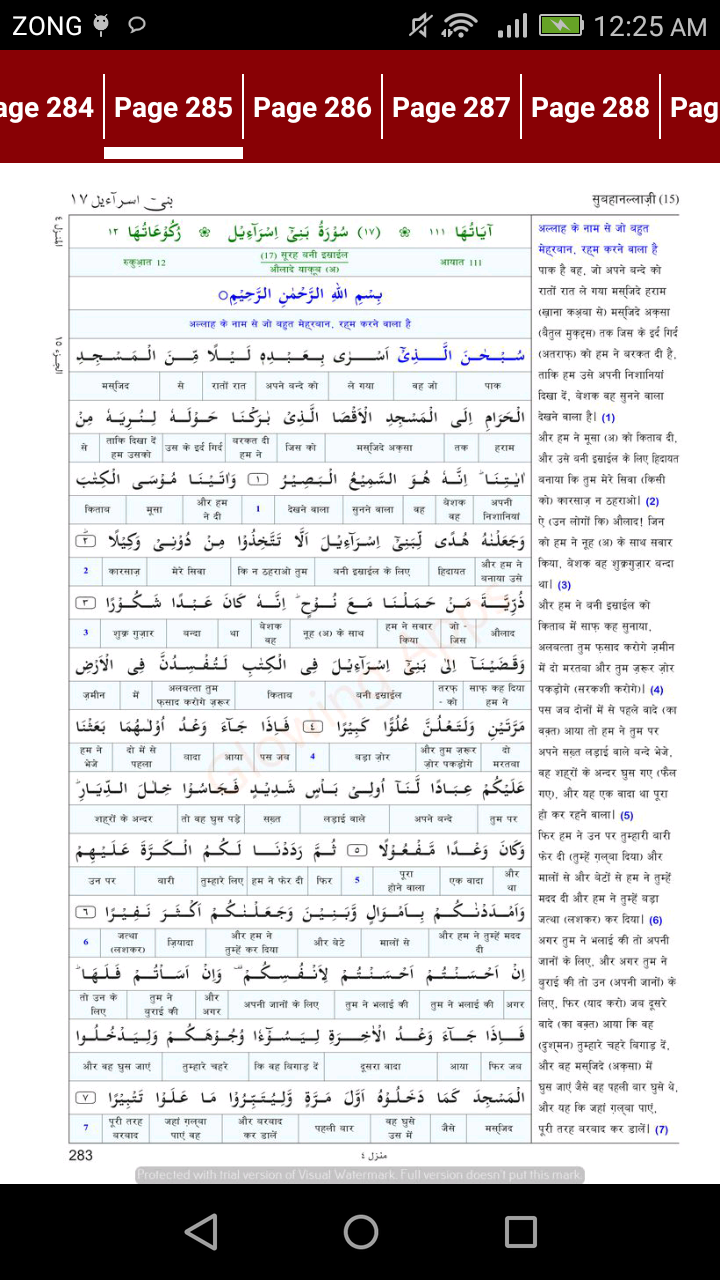 ZONG 12:25 AM
age 284 Page 285 Page 286 Page 287 Page 288 Pag
بنی اسرآءیل ١٧ सुबहानल्लाज़ी (15)
اٰیَاتُهَا ١١١ (١٧) سُوْرَةُ بَنِیْۤ اِسْرَآءِیْل رُكُوْعَاتُهَا ١٢
रुकुआ़त 12 (17) सूरह बनी इस्राईल आयात 111
औलादे याकूब (अ)
بِسْمِ اللهِ الرَّحْمٰنِ الرَّحِیْمِ
अल्लाह के नाम से जो बहुत मेह्रबान, रह्म करने वाला है
سُبْحٰنَ الَّذِیْۤ اَسْرٰى بِعَبْدِهٖ لَیْلًا مِّنَ الْمَسْجِدِ
मस्जिद से रातों रात अपने बन्दे को ले गया वह जो पाक
الْحَرَامِ اِلَى الْمَسْجِدِ الْاَقْصَا الَّذِیْ بٰرَكْنَا حَوْلَهٗ لِنُرِیَهٗ مِنْ
से ताकि दिखा दें हम उसको उस के इर्द गिर्द बरकत दी हम ने जिस को मस्जिदे अक़्सा तक हराम
اٰیٰتِنَا ؕ اِنَّهٗ هُوَ السَّمِیْعُ الْبَصِیْرُ ١ وَاٰتَیْنَا مُوْسَى الْكِتٰبَ
किताब मूसा और हम ने दी 1 देखने वाला सुनने वाला वह बेशक वह अपनी निशानियां
وَجَعَلْنٰهُ هُدًى لِّبَنِیْۤ اِسْرَآءِیْلَ اَلَّا تَتَّخِذُوْا مِنْ دُوْنِیْ وَكِیْلًا ٢
2 कारसाज़ मेरे सिवा कि न ठहराओ तुम बनी इस्राईल के लिए हिदायत और हम ने बनाया उसे
ذُرِّیَّةَ مَنْ حَمَلْنَا مَعَ نُوْحٍ ؕ اِنَّهٗ كَانَ عَبْدًا شَكُوْرًا ٣
3 शुक्र गुज़ार बन्दा था बेशक वह नूह (अ) के साथ हम ने सवार किया जो - जिस औलाद
وَقَضَیْنَاۤ اِلٰى بَنِیْۤ اِسْرَآءِیْلَ فِی الْكِتٰبِ لَتُفْسِدُنَّ فِی الْاَرْضِ
ज़मीन में अलबत्ता तुम फ़साद करोगे ज़रूर किताब बनी इस्राईल तरफ़ - को साफ़ कह दिया हम ने
مَرَّتَیْنِ وَلَتَعْلُنَّ عُلُوًّا كَبِیْرًا ٤ فَاِذَا جَآءَ وَعْدُ اُوْلٰىهُمَا بَعَثْنَا
हम ने भेजे दो में से पहला वादा आया पस जब 4 बड़ा ज़ोर और तुम ज़रूर ज़ोर पकड़ोगे दो मरतबा
عَلَیْكُمْ عِبَادًا لَّنَاۤ اُولِیْ بَاْسٍ شَدِیْدٍ فَجَاسُوْا خِلٰلَ الدِّیَارِ ؕ
शहरों के अन्दर तो वह घुस पड़े सख़्त लड़ाई वाले अपने बन्दे तुम पर
وَكَانَ وَعْدًا مَّفْعُوْلًا ٥ ثُمَّ رَدَدْنَا لَكُمُ الْكَرَّةَ عَلَیْهِمْ
उन पर बारी तुम्हारे लिए हम ने फेर दी फिर 5 पूरा होने वाला एक वादा और था
وَاَمْدَدْنٰكُمْ بِاَمْوَالٍ وَّبَنِیْنَ وَجَعَلْنٰكُمْ اَكْثَرَ نَفِیْرًا ٦
6 जत्था (लशकर) ज़ियादा और हम ने तुम्हें कर दिया और बेटे मालों से और हम ने तुम्हें मदद दी
اِنْ اَحْسَنْتُمْ اَحْسَنْتُمْ لِاَنْفُسِكُمْ ۫ وَاِنْ اَسَاْتُمْ فَلَهَا ؕ
तो उन के लिए तुम ने बुराई की और अगर अपनी जानों के लिए तुम ने भलाई की तुम ने भलाई की अगर
فَاِذَا جَآءَ وَعْدُ الْاٰخِرَةِ لِیَسُوْٓءٗا وُجُوْهَكُمْ وَلِیَدْخُلُوا
और वह घुस जाएं तुम्हारे चहरे कि वह बिगाड़ दें दूसरा वादा आया फिर जब
الْمَسْجِدَ كَمَا دَخَلُوْهُ اَوَّلَ مَرَّةٍ وَّلِیُتَبِّرُوْا مَا عَلَوْا تَتْبِیْرًا ٧
7 पूरी तरह बरबाद जहां ग़ल्बा पाएं वह और बरबाद कर डालें पहली बार वह घुसे उस में जैसे मस्जिद
अल्लाह के नाम से जो बहुत
मेह्रबान, रह्म करने वाला है
पाक है वह, जो अपने बन्दे को
रातों रात ले गया मस्जिदे हराम
(ख़ाना कअ़बा से) मस्जिदे अक़्सा
(बैतुल मुक़द्दस) तक जिस के इर्द गिर्द
(अतराफ़) को हम ने बरकत दी है,
ताकि हम उसे अपनी निशानियां
दिखा दें, बेशक वह सुनने वाला
देखने वाला है। (1)
और हम ने मूसा (अ) को किताब दी,
और उसे बनी इस्राईल के लिए हिदायत
बनाया कि तुम मेरे सिवा (किसी
को) कारसाज़ न ठहराओ। (2)
ऐ (उन लोगों कि) औलाद! जिन
को हम ने नूह (अ) के साथ सवार
किया, बेशक वह शुक्रगुज़ार बन्दा
था। (3)
और हम ने बनी इस्राईल को
किताब में साफ़ कह सुनाया,
अलबत्ता तुम फ़साद करोगे ज़मीन
में दो मरतबा और तुम ज़रूर ज़ोर
पकड़ोगे (सरकशी करोगे)। (4)
पस जब दोनों में से पहले वादे (का
वक़्त) आया तो हम ने तुम पर
अपने सख़्त लड़ाई वाले बन्दे भेजे,
वह शहरों के अन्दर घुस गए (फैल
गए), और यह एक वादा था पूरा
हो कर रहने वाला। (5)
फिर हम ने उन पर तुम्हारी बारी
फेर दी (तुम्हें ग़ल्बा दिया) और
मालों से और बेटों से हम ने तुम्हें
मदद दी और हम ने तुम्हें बड़ा
जत्था (लशकर) कर दिया। (6)
अगर तुम ने भलाई की तो अपनी
जानों के लिए, और अगर तुम ने
बुराई की तो उन (अपनी जानों) के
लिए, फिर (याद करो) जब दूसरे
वादे (का वक़्त) आया कि वह
(दुश्मन) तुम्हारे चहरे बिगाड़ दें,
और वह मस्जिदे (अक़्सा) में
घुस जाएं जैसे वह पहली बार घुसे थे,
और यह कि जहां ग़ल्बा पाएं,
पूरी तरह बरबाद कर डालें। (7)
المنزل ٤
الجزء ١٥
Glowing Apps
283 منزل ٤
Protected with trial version of Visual Watermark. Full version doesn't put this mark.